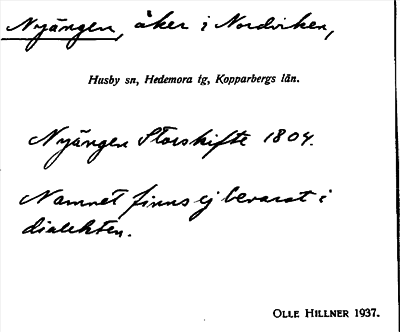 Nyängen, åker i Nordviken,
Husby sn, Hedemora tg, Kopparbergs län.
Nyängen Storskifte 1804.
Namnet finns ej bevarat i
dialekten.
OLLE HILLNER 1937.